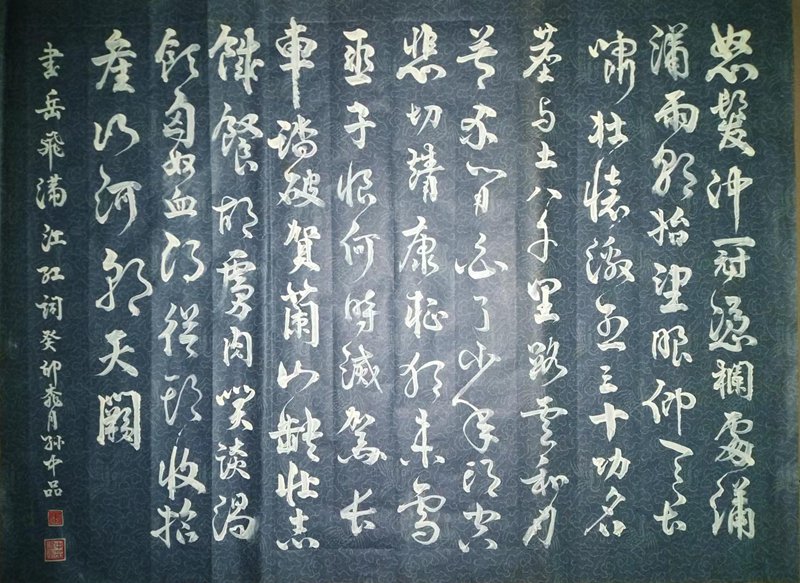 怒髮冲冠憑欄處瀟
瀟雨歇抬望眼仰天长
嘯壮懷激烈三十功名
塵与土八千里路雲和月
莫等閒白了少年頭空
悲切靖康耻猶未雪
臣子恨何時滅駕长
車踏破賀蘭山缺壮志
饑餐胡虜肉笑談渴
飲匈奴血待從頭收拾
舊山河朝天闕
書岳飛滿江红詞癸卯月孙中品